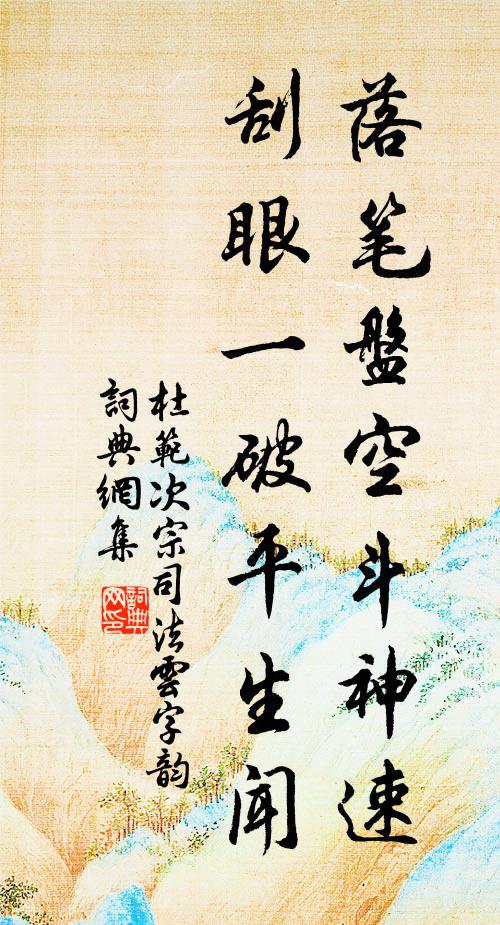 落笔盤空斗神速
刮眼一破平生闻
杜範次宗司法雲字韵
詞典網集
詞典网印